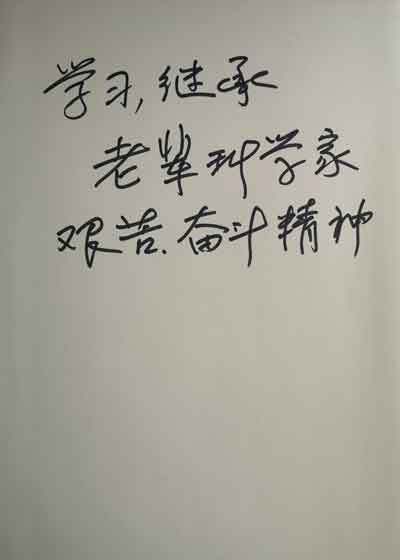 学习,继承
老辈科学家
艰苦、奋斗精神